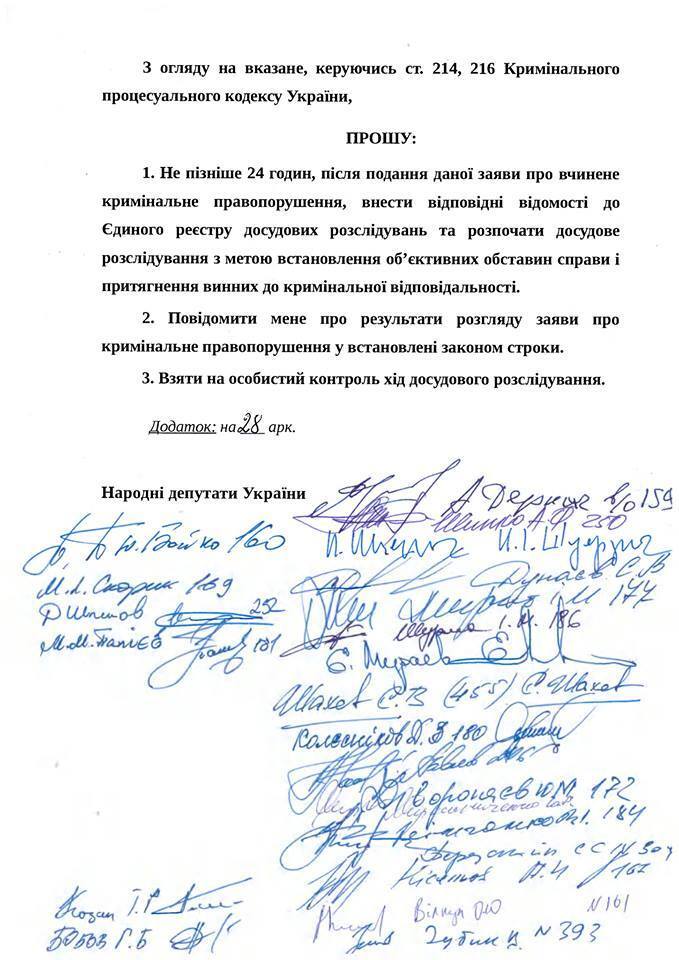 З огляду на вказане, керуючись ст. 214, 216 Кримінального
процесуального кодексу України,
ПРОШУ:
1. Не пізніше 24 годин, після подання даної заяви про вчинене
кримінальне правопорушення, внести відповідні відомості до
Єдиного реєстру досудових розслідувань та розпочати досудове
розслідування з метою встановлення об’єктивних обставин справи і
притягнення винних до кримінальної відповідальності.
2. Повідомити мене про результати розгляду заяви про
кримінальне правопорушення у встановлені законом строки.
3. Взяти на особистий контроль хід досудового розслідування.
Додаток: на 28 арк.
Народні депутати України
А. Деркач 159
250
Ю. Бойко 160
М.Л. Скорик 189
Дунаєв С.В
252
177
М.М. Папієв 181
186
Є. Мураєв
Шахов С.В (455) С. Шахов
Колєсніков Д.В 180
Воропаєв Ю.М. 172
184
Кісельов 162
Козак Т.Р
Вілкул О.Ю N 161
Бобов Г.Б
N 393